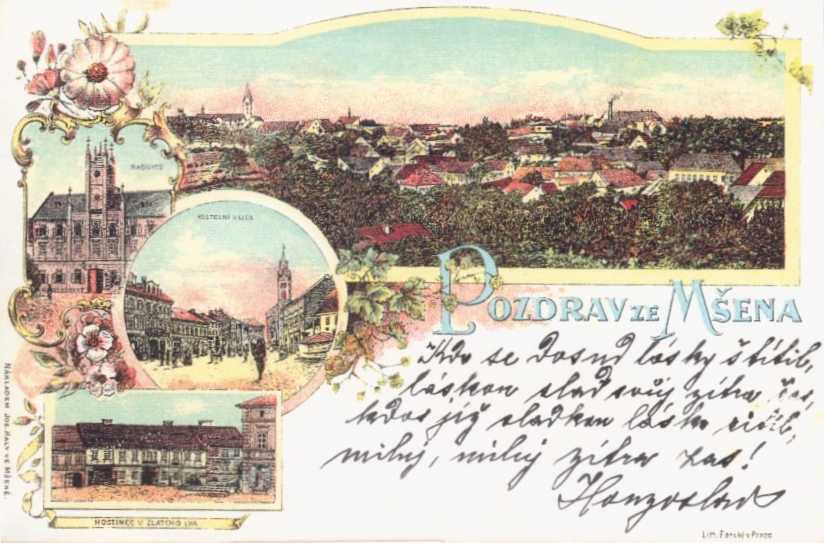 RADNICE
KOSTELNÍ ULICE
POZDRAV ZE MŠENA
Kdo se dosud lásky štítil,
láskou slad svůj zítra čas,
kdos již sladkou lásku cítil,
miluj, miluj zítra zas!
HOSTINEC U ZLATÉHO LVA.
NÁKLADEM JOS. HALY VE MŠENĚ.
Lith. Farský v Praze